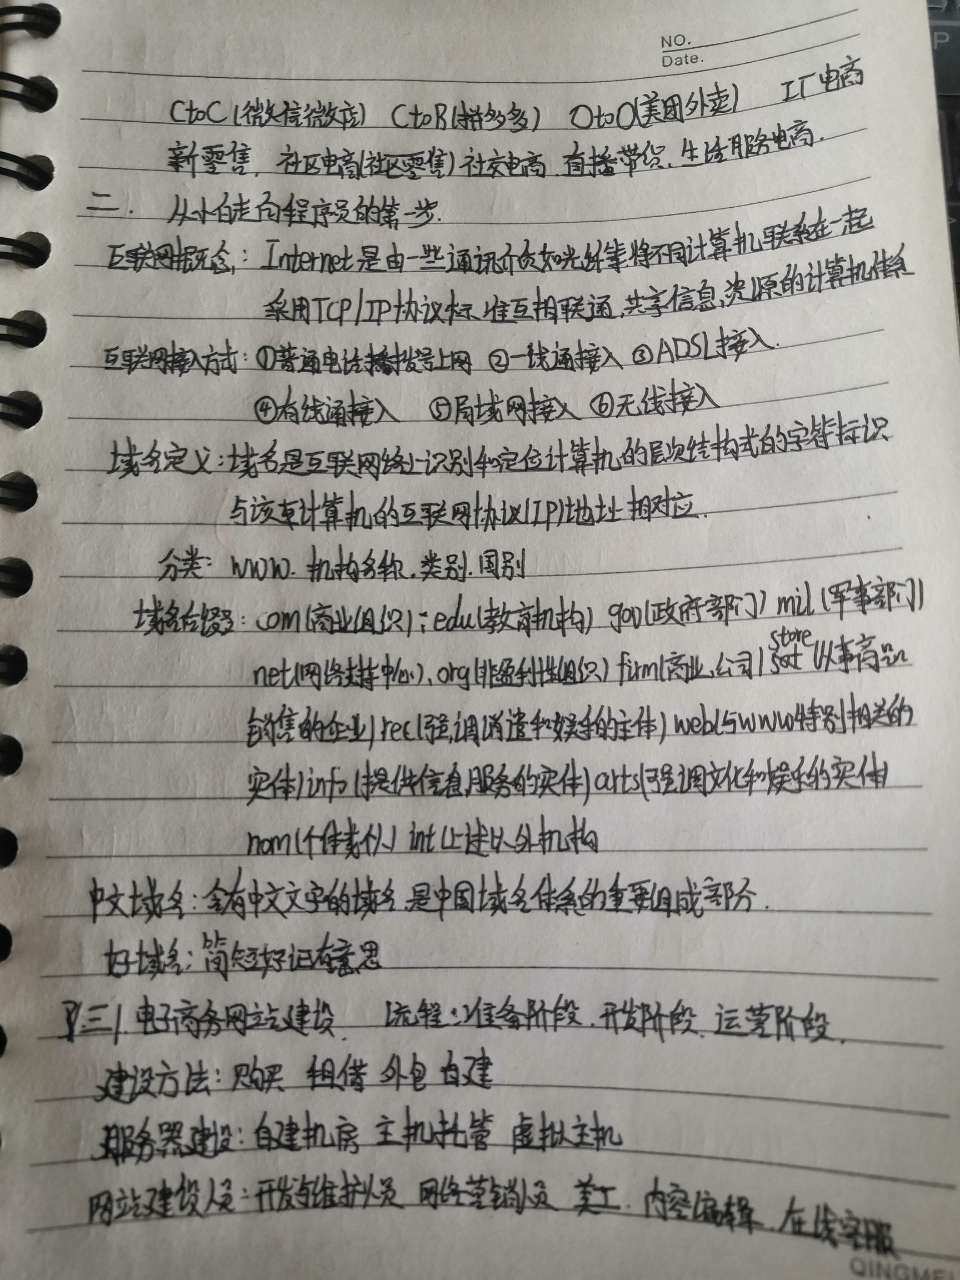 NO.
Date.
CtoC(微信微店) CtoB(拼多多) OtoO(美团外卖) 工厂电商
新零售, 社区电商(社区零售)社交电商.直播带货,生活服务电商.
二. 从小白走向程序员的第一步.
互联网概念:Internet是由一些通讯介质如光纤等将不同计算机联系在一起
采用TCP/IP协议标准互相联通,共享信息,资源的计算机体系
互联网接入方式:①普通电话拨号上网 ②一线通接入 ③ADSL接入.
④有线通接入 ⑤局域网接入 ⑥无线接入
域名定义:域名是互联网络上识别和定位计算机的层次结构式的字符标识
与该台计算机的互联网协议(IP)地址相对应.
分类: www.机构名称.类别.国别
域名后缀:com(商业组织);edu(教育机构) gov(政府部门) mil(军事部门)
net(网络支持中心).org(非盈利性组织) firm(商业,公司) store (从事商品
销售的企业)rec(强调消遣和娱乐的主体) web(与www特别相关的
实体)info(提供信息服务的实体)arts(强调文化和娱乐的实体)
nom(个体) int(上述以外机构
中文域名:含有中文文字的域名.是中国域名体系的重要组成部分.
好域名:简短好记有意思
三) 电子商务网站建设 流程:准备阶段.开发阶段.运营阶段.
建设方法:购买 租借 外包 自建
服务器建设:自建机房 主机托管 虚拟主机
网站建设人员:开发与维护人员 网络营销人员 美工.内容编辑.在线客服
QINGMEI